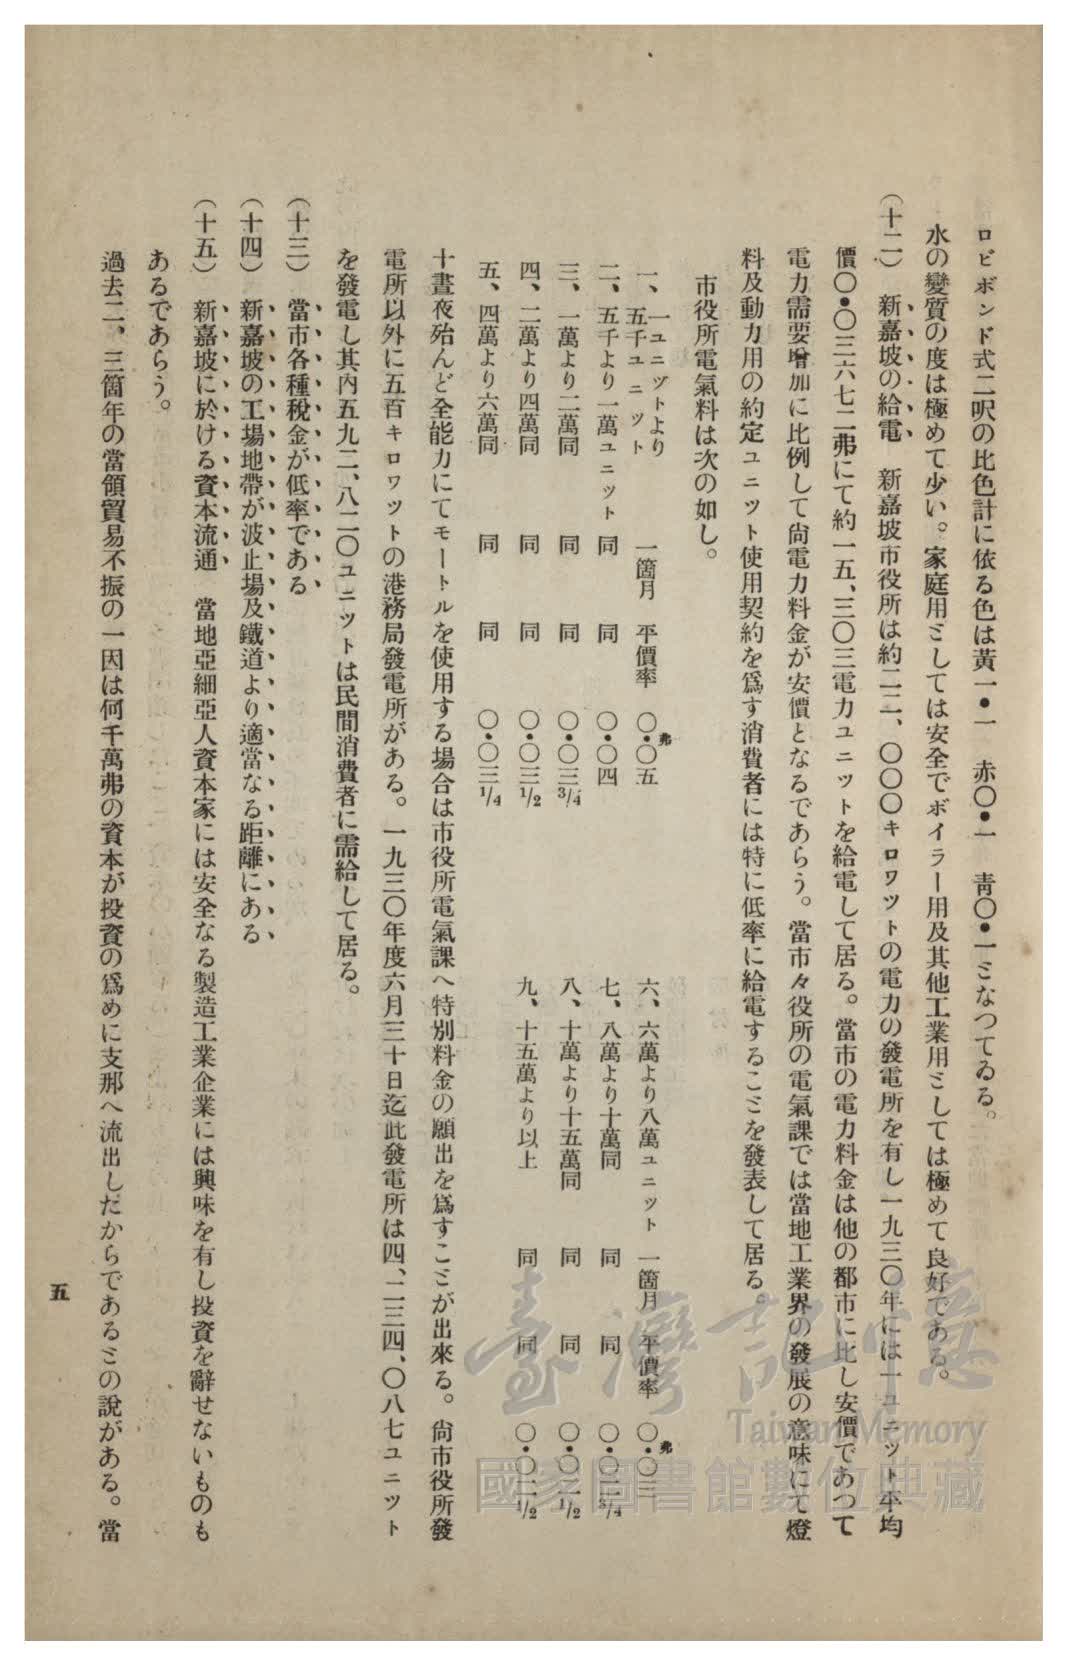 ロビボンド式二呎の比色計に依る色は黃一•一　赤〇•一　靑〇•一ミなつてゐる。
水の變質の度は極めて少い。家庭用ミしては安全でボイラー用及其他工業用ミしては極めて良好である。
(十二)　新嘉坡の給電　新嘉坡市役所は約二二、〇〇〇キロワツトの電力の發電所を有し一九三〇年には一ユニツト平均
價〇•〇三六七二弗にて約一五、三〇三電力ユニツトを給電して居る。當市の電力料金は他の都市に比し安價であつて
電力需要增加に比例して尙電力料金が安價となるであらう。當市々役所の電氣課では當地工業界の發展の意味にて燈
料及動力用の約定ユニツト使用契約を爲す消費者には特に低率に給電するこミを發表して居る。
市役所電氣料は次の如し。
一、一ユニツトより五千ユニツト　一箇月　平價率　〇•〇五弗
二、五千より一萬ユニツト　同　同　〇•〇四
三、一萬より二萬同　同　同　〇•〇三3/4
四、二萬より四萬同　同　同　〇•〇三1/2
五、四萬より六萬同　同　同　〇•〇三1/4
六、六萬より八萬ユニツト　一箇月　平價率　〇•〇三弗
七、八萬より十萬同　同　同　〇•〇二3/4
八、十萬より十五萬同　同　同　〇•〇二1/2
九、十五萬より以上　同　同　〇•〇二1/2
十晝夜殆んど全能力にてモートルを使用する場合は市役所電氣課へ特別料金の願出を爲すこミが出來る。尙市役所發
電所以外に五百キロワツトの港務局發電所がある。一九三〇年度六月三十日迄此發電所は四、二三四、〇八七ユニツト
を發電し其內五九二、八二〇ユニツトは民間消費者に需給して居る。
(十三)　當市各種稅金が低率である
(十四)　新嘉坡の工場地帶が波止場及鐵道より適當なる距離にある
(十五)　新嘉坡に於ける資本流通　當地亞細亞人資本家には安全なる製造工業企業には興味を有し投資を辭せないものも
あるであらう。
過去二、三箇年の當領貿易不振の一因は何千萬弗の資本が投資の爲めに支那へ流出しだからであるミの說がある。當
五
臺灣記憶
Taiwan Memory
國家圖書館數位典藏